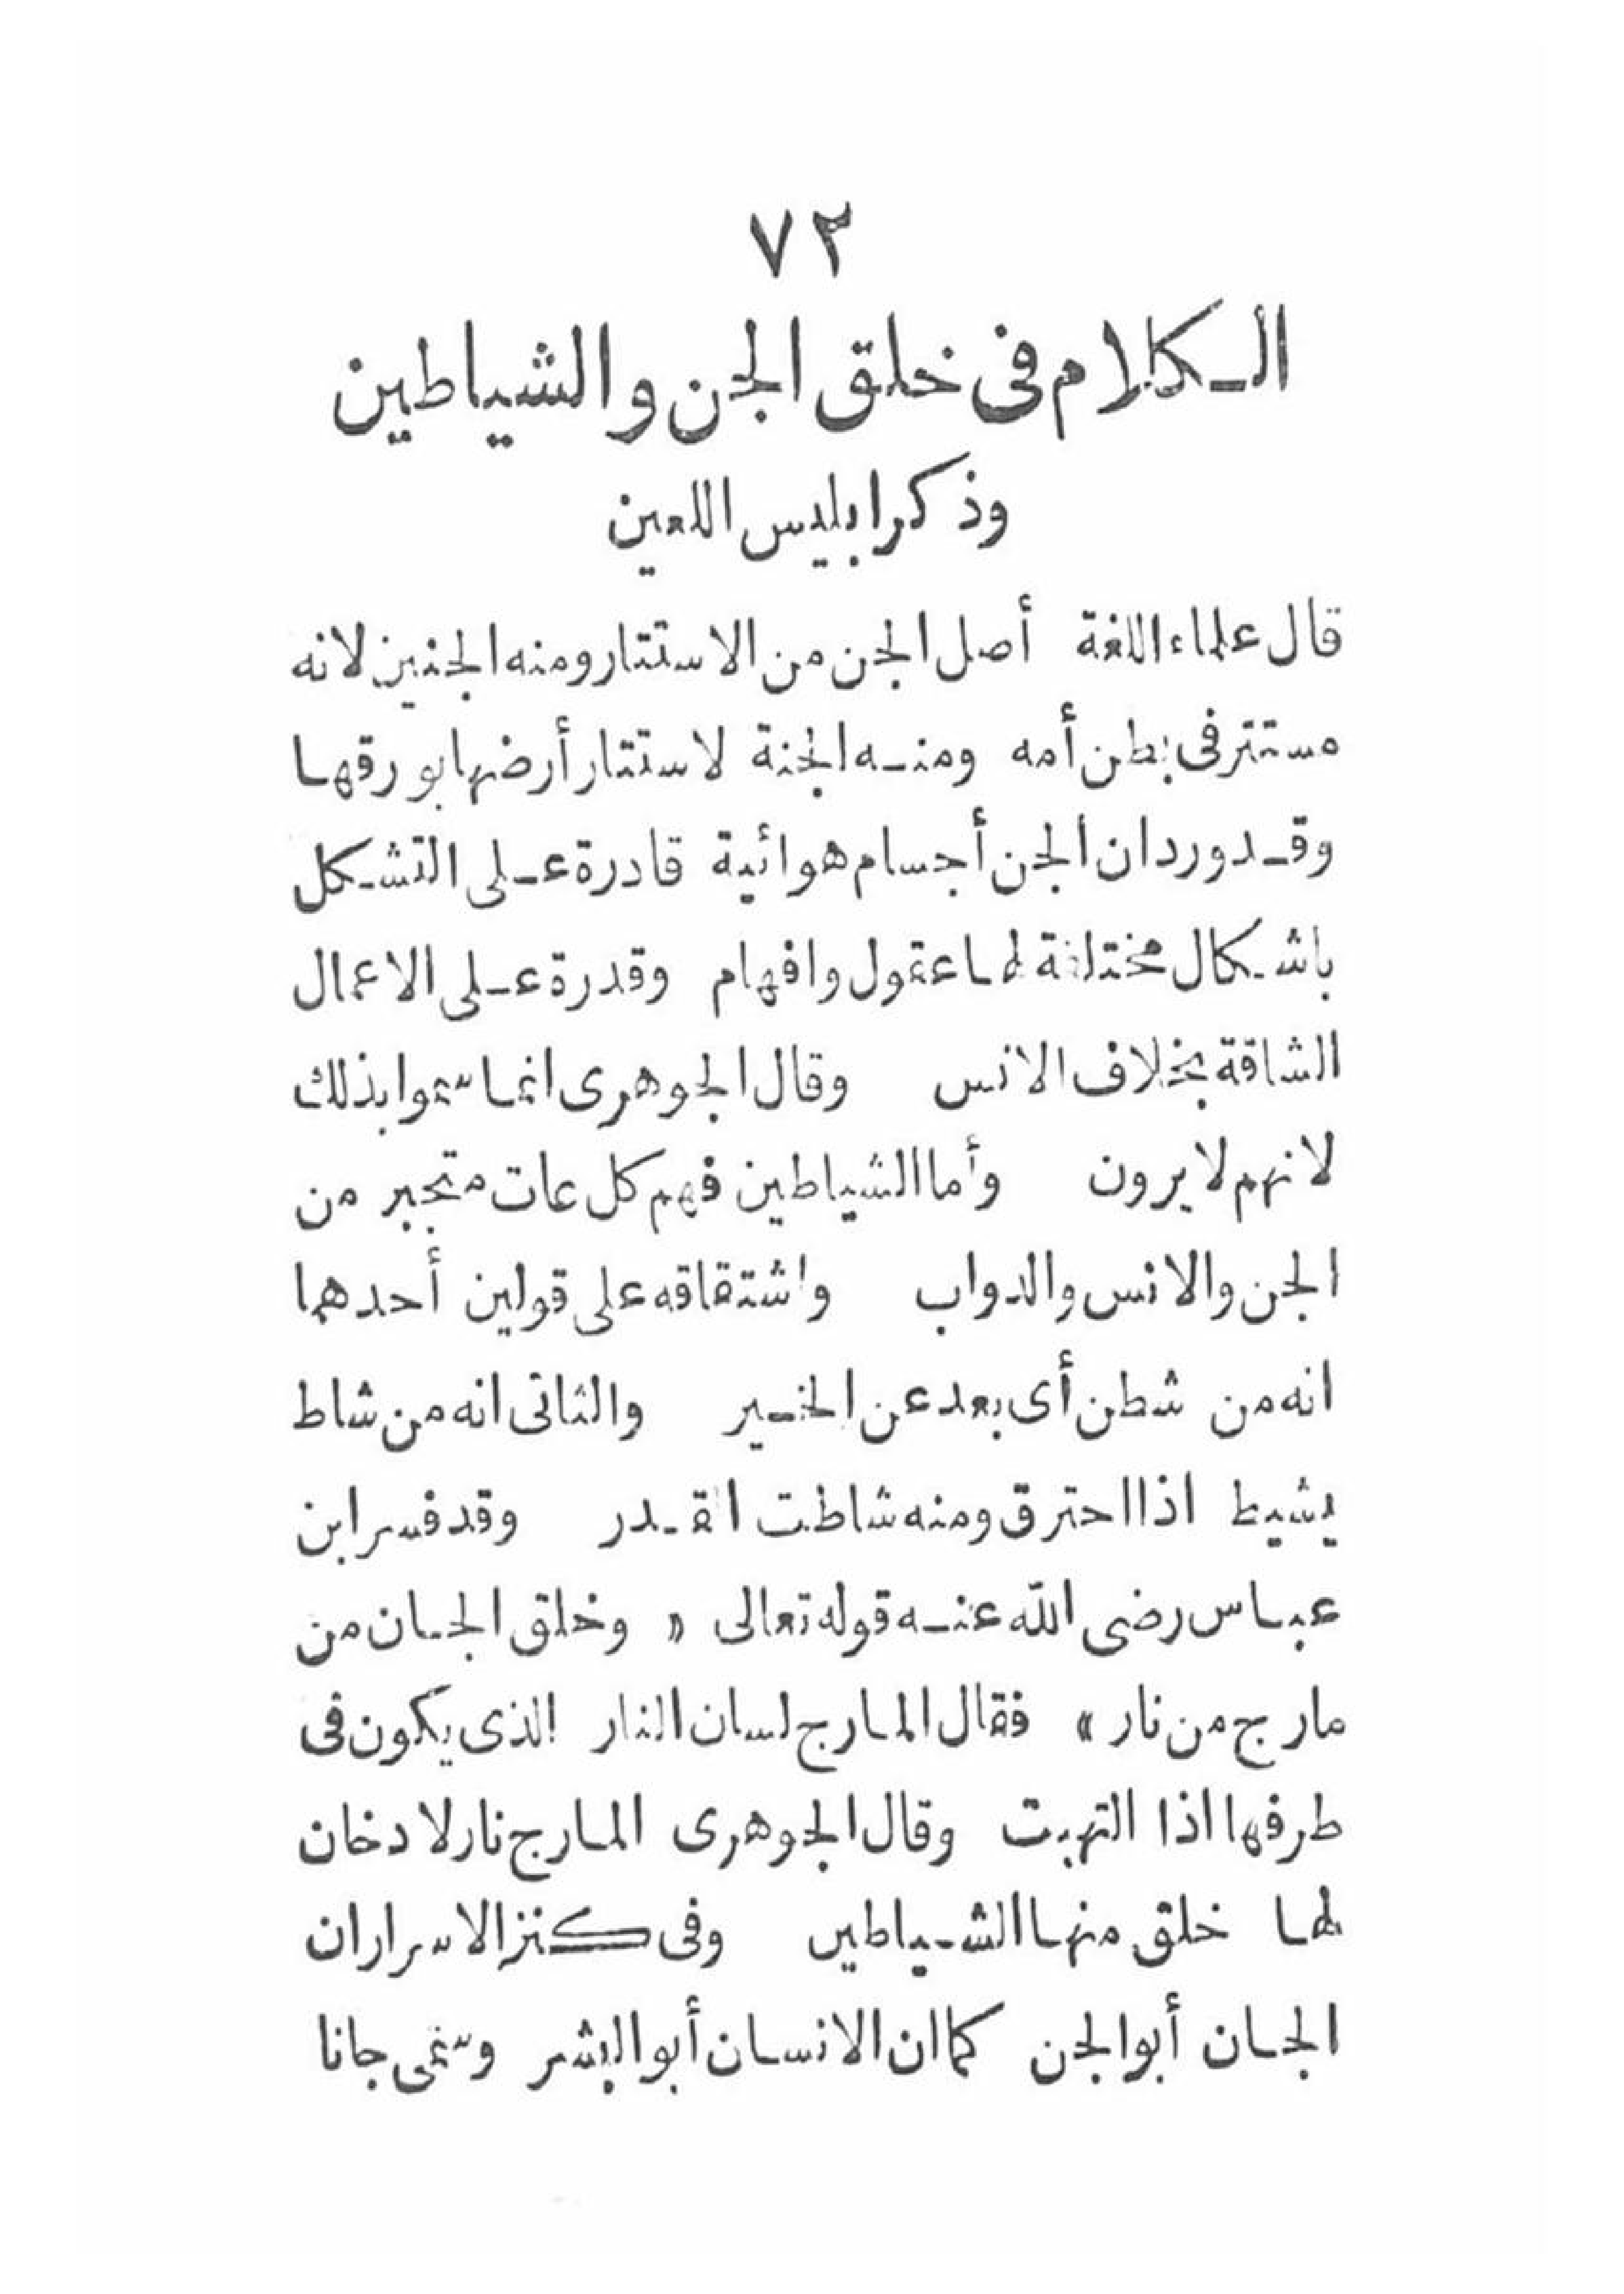 ٧٣
الكلام فى خلق الجن والشياطين
وذكر ابليس اللعين
قال علماء اللغة أصل الجن من الاستتار ومنه الجنين لانه
مستتر فى بطن أمه ومنه الجنة لاستتار أرضها بورقها
وقد ورد ان الجن أجسام هوائية قادرة على التشكل
باشكال مختلفة لها عقول وافهام وقدرة على الاعمال
الشاقة بخلاف الانس وقال الجوهرى انما سموا بذلك
لانهم لا يرون وأما الشياطين فهم كل عات متجبر من
الجن والانس والدواب واشتقاقه على قولين أحدهما
انه من شطن أى بعد عن الخير والثانى انه من شاط
يشيط اذا احترق ومنه شاطت القدر وقد فسر ابن
عباس رضى الله عنه قوله تعالى « وخلق الجان من
مارج من نار » فقال المارج لسان النار الذى يكون فى
طرفها اذا التهبت وقال الجوهرى المارج نار لا دخان
لها خلق منها الشياطين وفى كنز الاسرار ان
الجان أبو الجن كما ان الانسان أبو البشر وسمى جانا